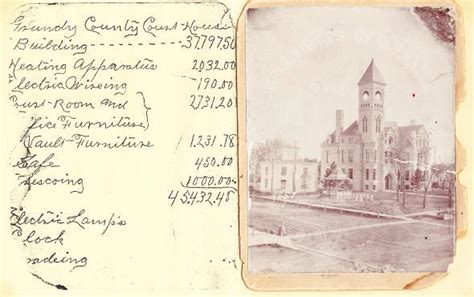 Grundy County Court House
Building 37797.50
Heating Apparatus 2032.00
lectric Wireing 190.00
ourt-Room and } 2731.20
fice Furniture
Vault-Furniture 1231.78
Safe 450.00
rescoing 1000.00
45432.48
lectric Lamps
lock
radeing